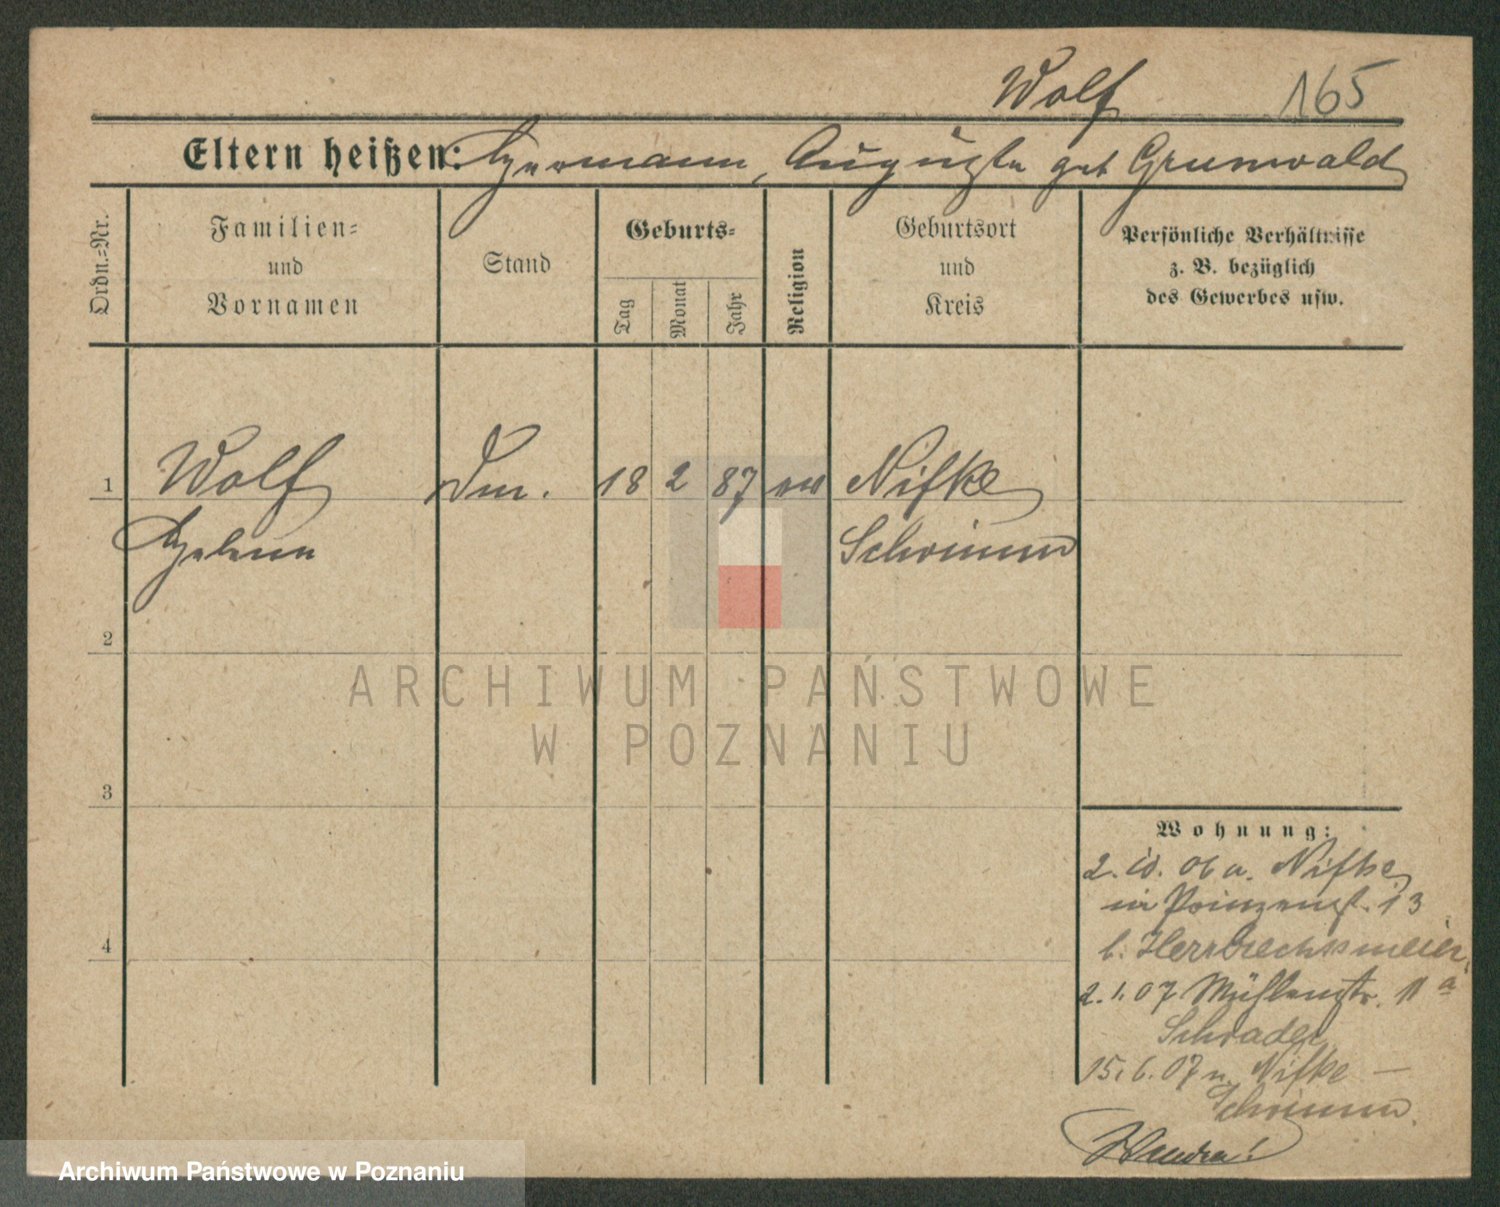 Wolf 165
Eltern heißen: Hermann, Auguste geb Grunwald
Ordn.-Nr.
Familien-
und
Vornamen
Stand
Geburts-
Tag
Monat
Jahr
Religion
Geburtsort
und
Kreis
Persönliche Verhältnisse
z. B. bezüglich
des Gewerbes usw.
1 Wolf 18 2 87 ev Nifke
Helene Schrimm
2
3
4
Wohnung:
2. 10. 06 a. Nifke
in Prinzenst. 13
b. Herrbrechtsmeier
2. 1. 07 Mühlenstr. 11 a
Schrader
15. 6. 07 n. Nifke —
Schrimm.
ARCHIWUM PAŃSTWOWE
W POZNANIU
Archiwum Państwowe w Poznaniu